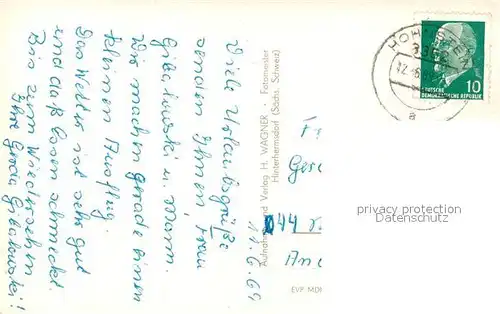 Viele Urlaubsgrüße
senden Ihnen Frau
u. Mann.
Wir machen gerade einen
kleinen Ausflug.
Das Wetter ist sehr gut
und das Essen schmeckt
Bis zum Wiedersehen
Ihre Gerda
11.6.64
Aufnahme und Verlag H. WAGNER · Fotomeister
Hinterhermsdorf (Sächs. Schweiz)
EVP MDN
HOHNSTEIN
a
10
DEUTSCHE
DEMOKRATISCHE REPUBLIK
privacy protection
Datenschutz